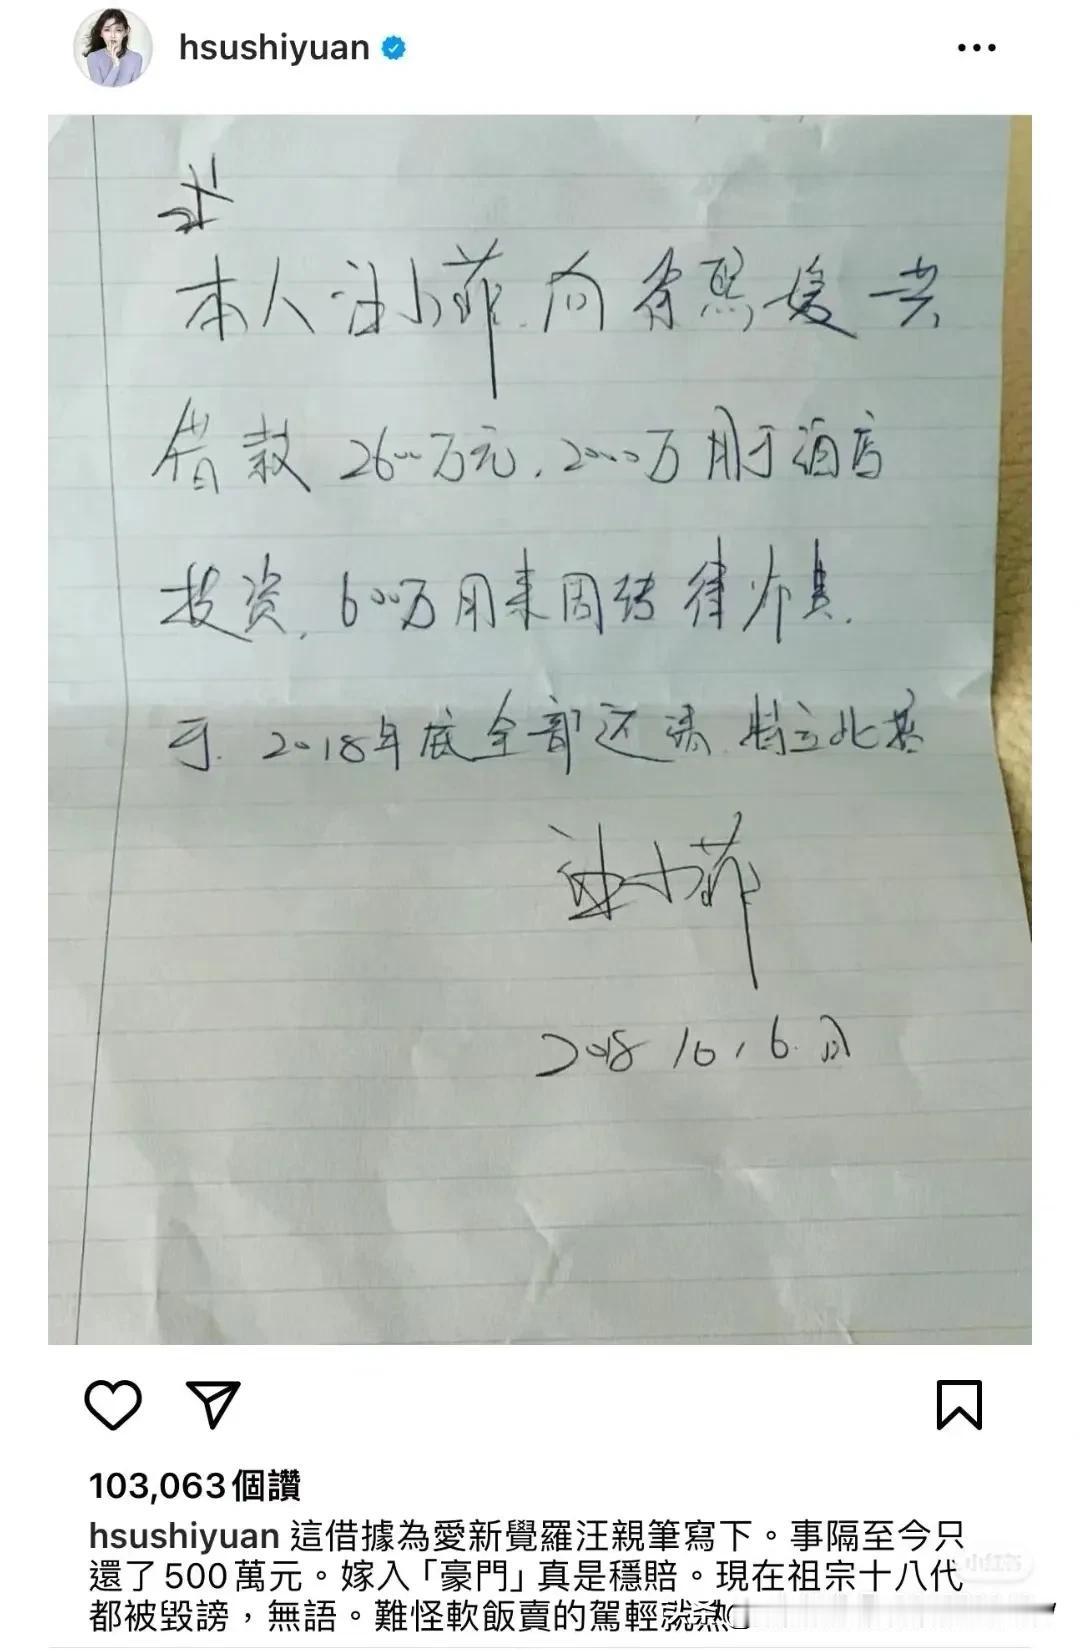 hsushiyuan
本人汪小菲.向徐熙媛共
借款2600万元.2000万用于酒店
投资.600万用来周转律师费.
于.2018年底全部还清.特立此据
汪小菲
2018.10.6.日
103,063個讚
hsushiyuan 這借據為愛新覺羅汪親筆寫下。事隔至今只
還了500萬元。嫁入「豪門」真是穩賠。現在祖宗十八代
都被毀謗，無語。難怪軟飯賣的駕輕就熟
小红书